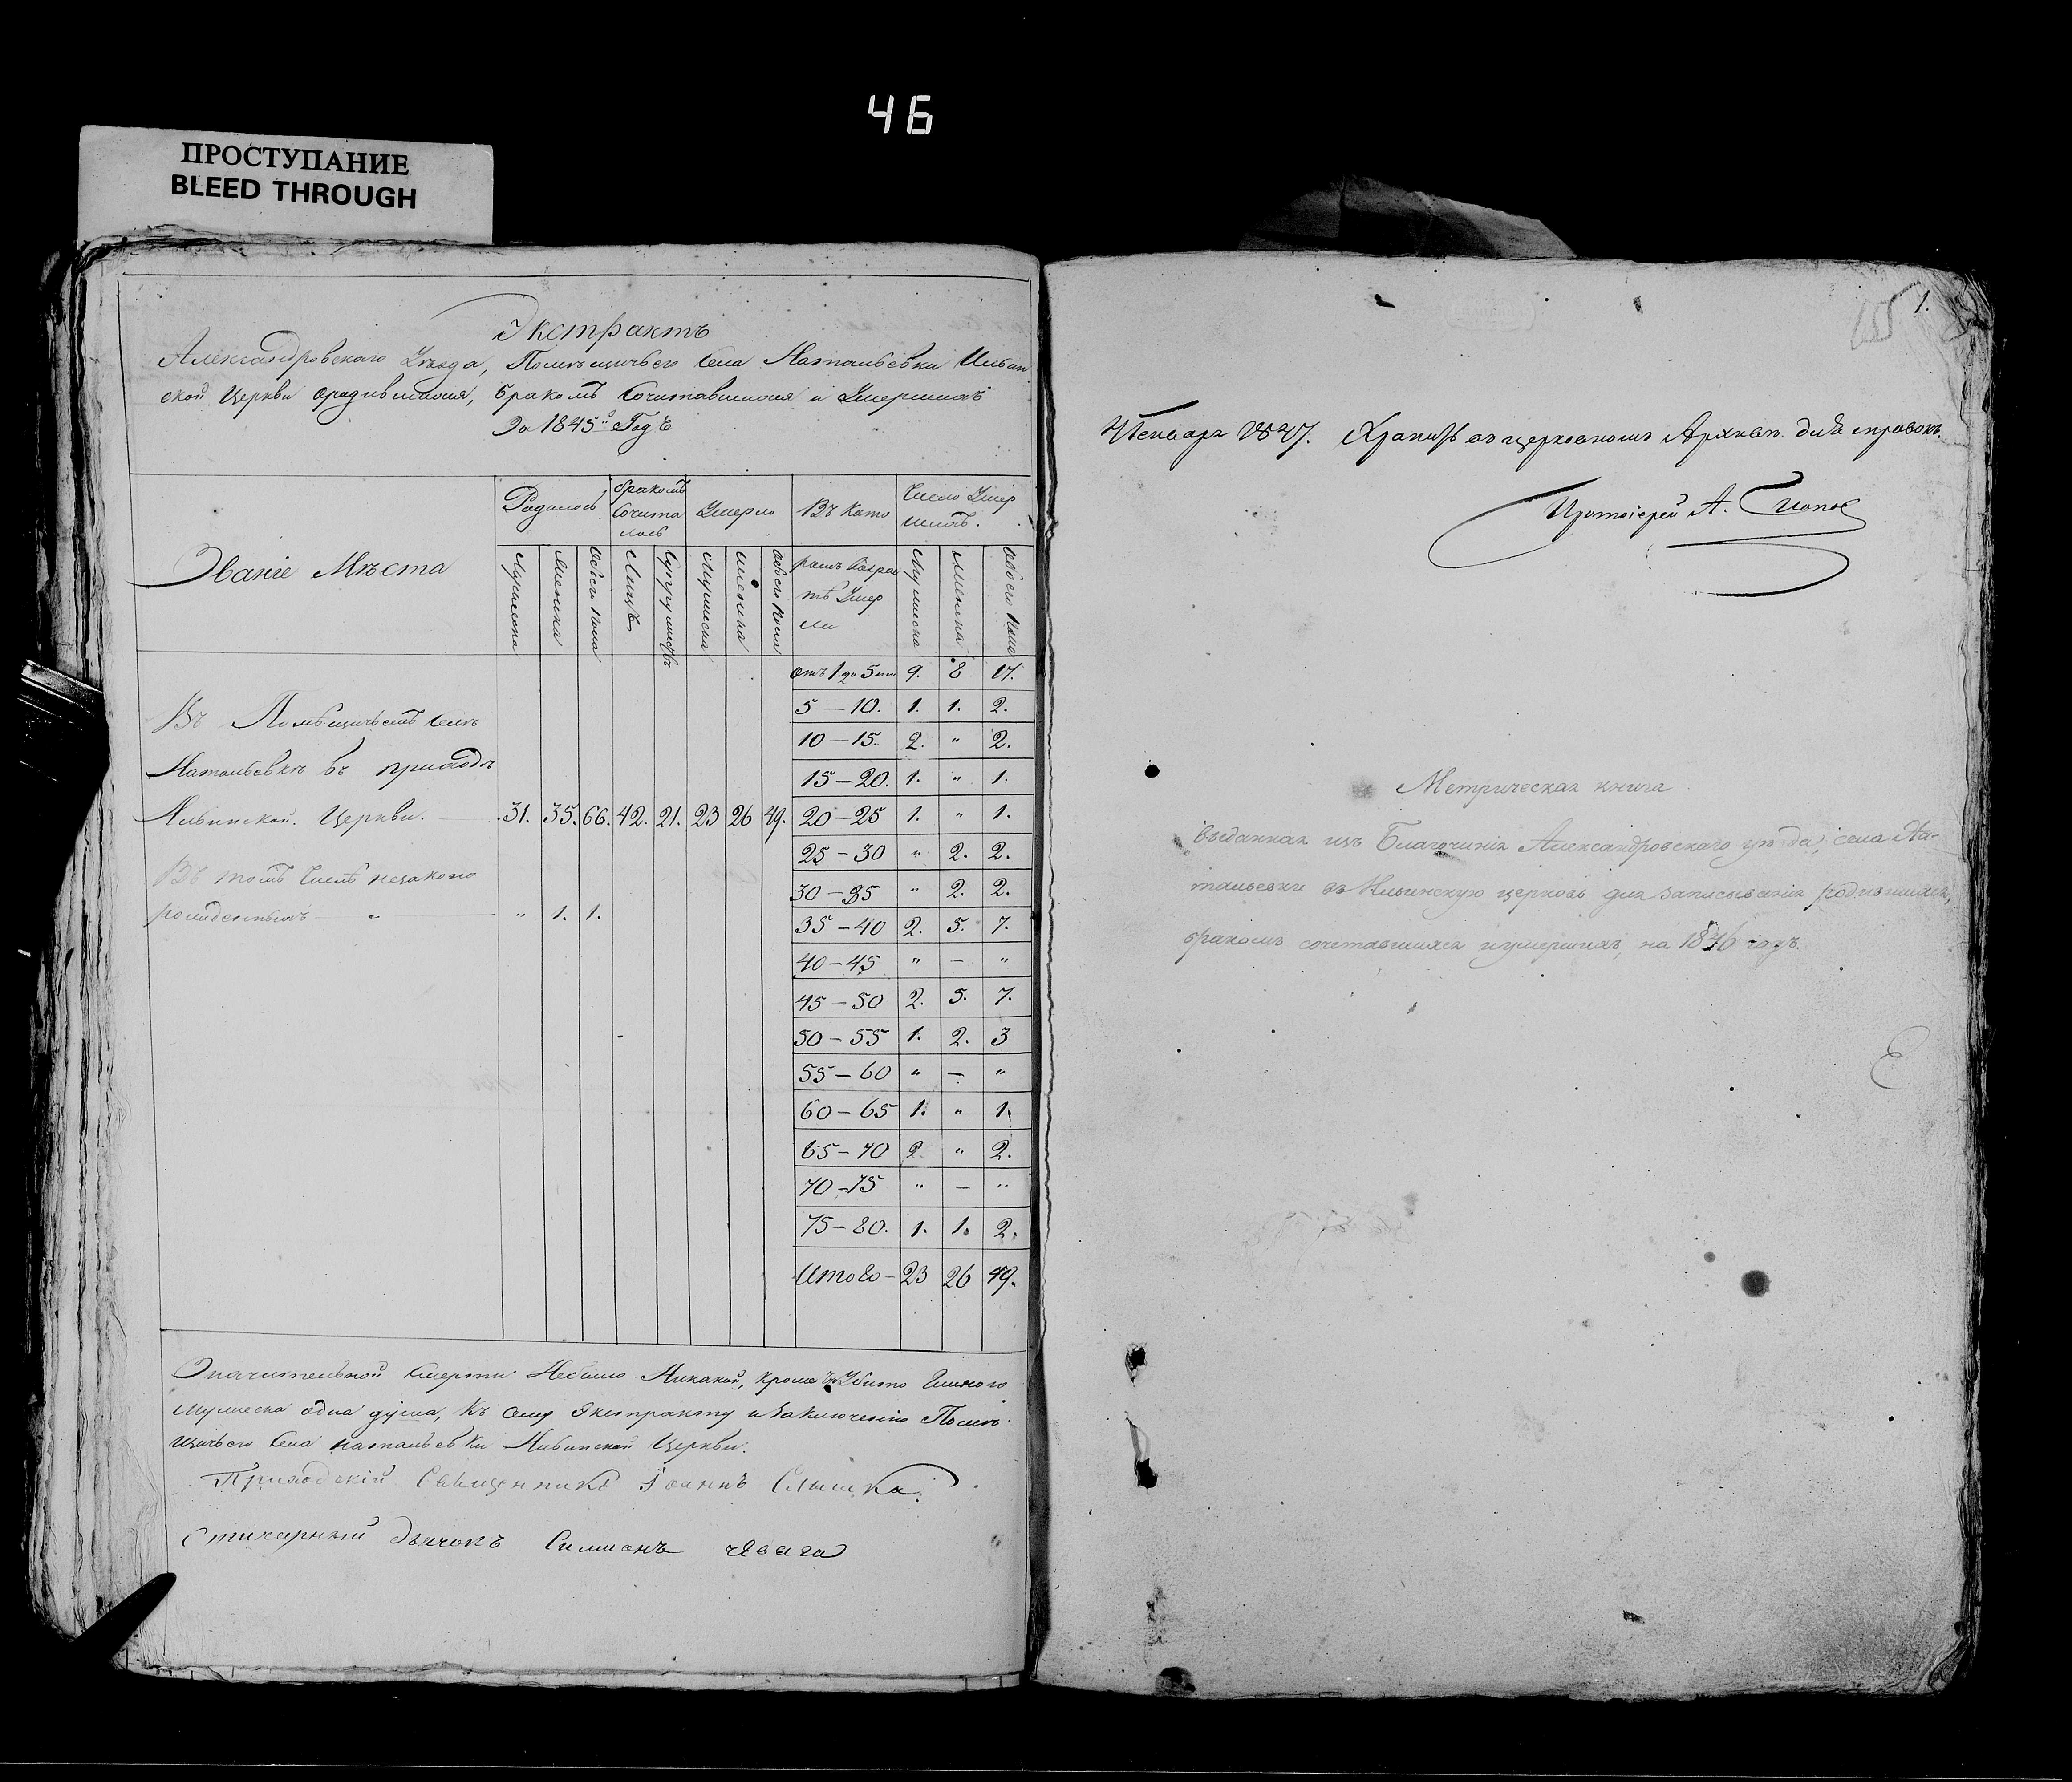 46
ПРОСТУПАНИЕ
BLEED THROUGH
Экстрактъ
Александровского Уѣзда, Помѣщичьего Села Натальевки Ильин
ской Церкви ородившихся, бракомъ Сочитавшихся и Умершихъ
За 1845й Годъ
Званіе Мѣста
Родилось
бракомъ Сочита лось
Умерло
Въ Кото
Число Умер шихъ.
Мужеска
Женска
Обоего Пола
Лицъ
Супружествъ
Мужеска
Женска
Обоего Пола
рыхъ
Умер ли
Мужеска
Женска
Обоего Пола
отъ 1. до 5 9. 8 17.
5 — 10. 1. 1. 2.
10 — 15. 2. " 2.
15 — 20. 1. " 1.
20 — 25 1. " 1.
25 — 30 " 2. 2.
30 — 35 " 2. 2.
35 — 40 2. 5. 7.
40 — 45 " — "
45 — 50 2. 5. 7.
50 — 55 1. 2. 3
55 — 60 " — "
60 — 65 1. " 1.
65 — 70 2 " 2.
70 — 75 " — "
75 — 80. 1. 1. 2.
Итого — 23 26 49.
Въ Помѣщичьемъ Селѣ
Натальевкѣ въ приходѣ
Ильинской Церкви. 31. 35. 66. 42. 21. 23 26 49.
Въ томъ Числѣ незаконо
рожденныхъ " " 1. 1.
Значительной Смерти Небыло Никакой, кроме Убито
мужеска одна душа, Къ Сему Экстракту и Заключенію Помѣ
щичьего Села натальевки Ильинской Церкви.
Приходскій Священникъ Іоаннъ
Стихарный дьячокъ Симионъ
1.
Генваря 1847. Хранить въ церковномъ Архивѣ для справокъ.
Протоіерей А.
Метрическая книга
выданная изъ Благочинія Александровского уѣзда, села На-
тальевки въ Ильинскую церковь для записыванія родившихся,
бракомъ сочетавшихся и умершихъ, на 1846 годъ.